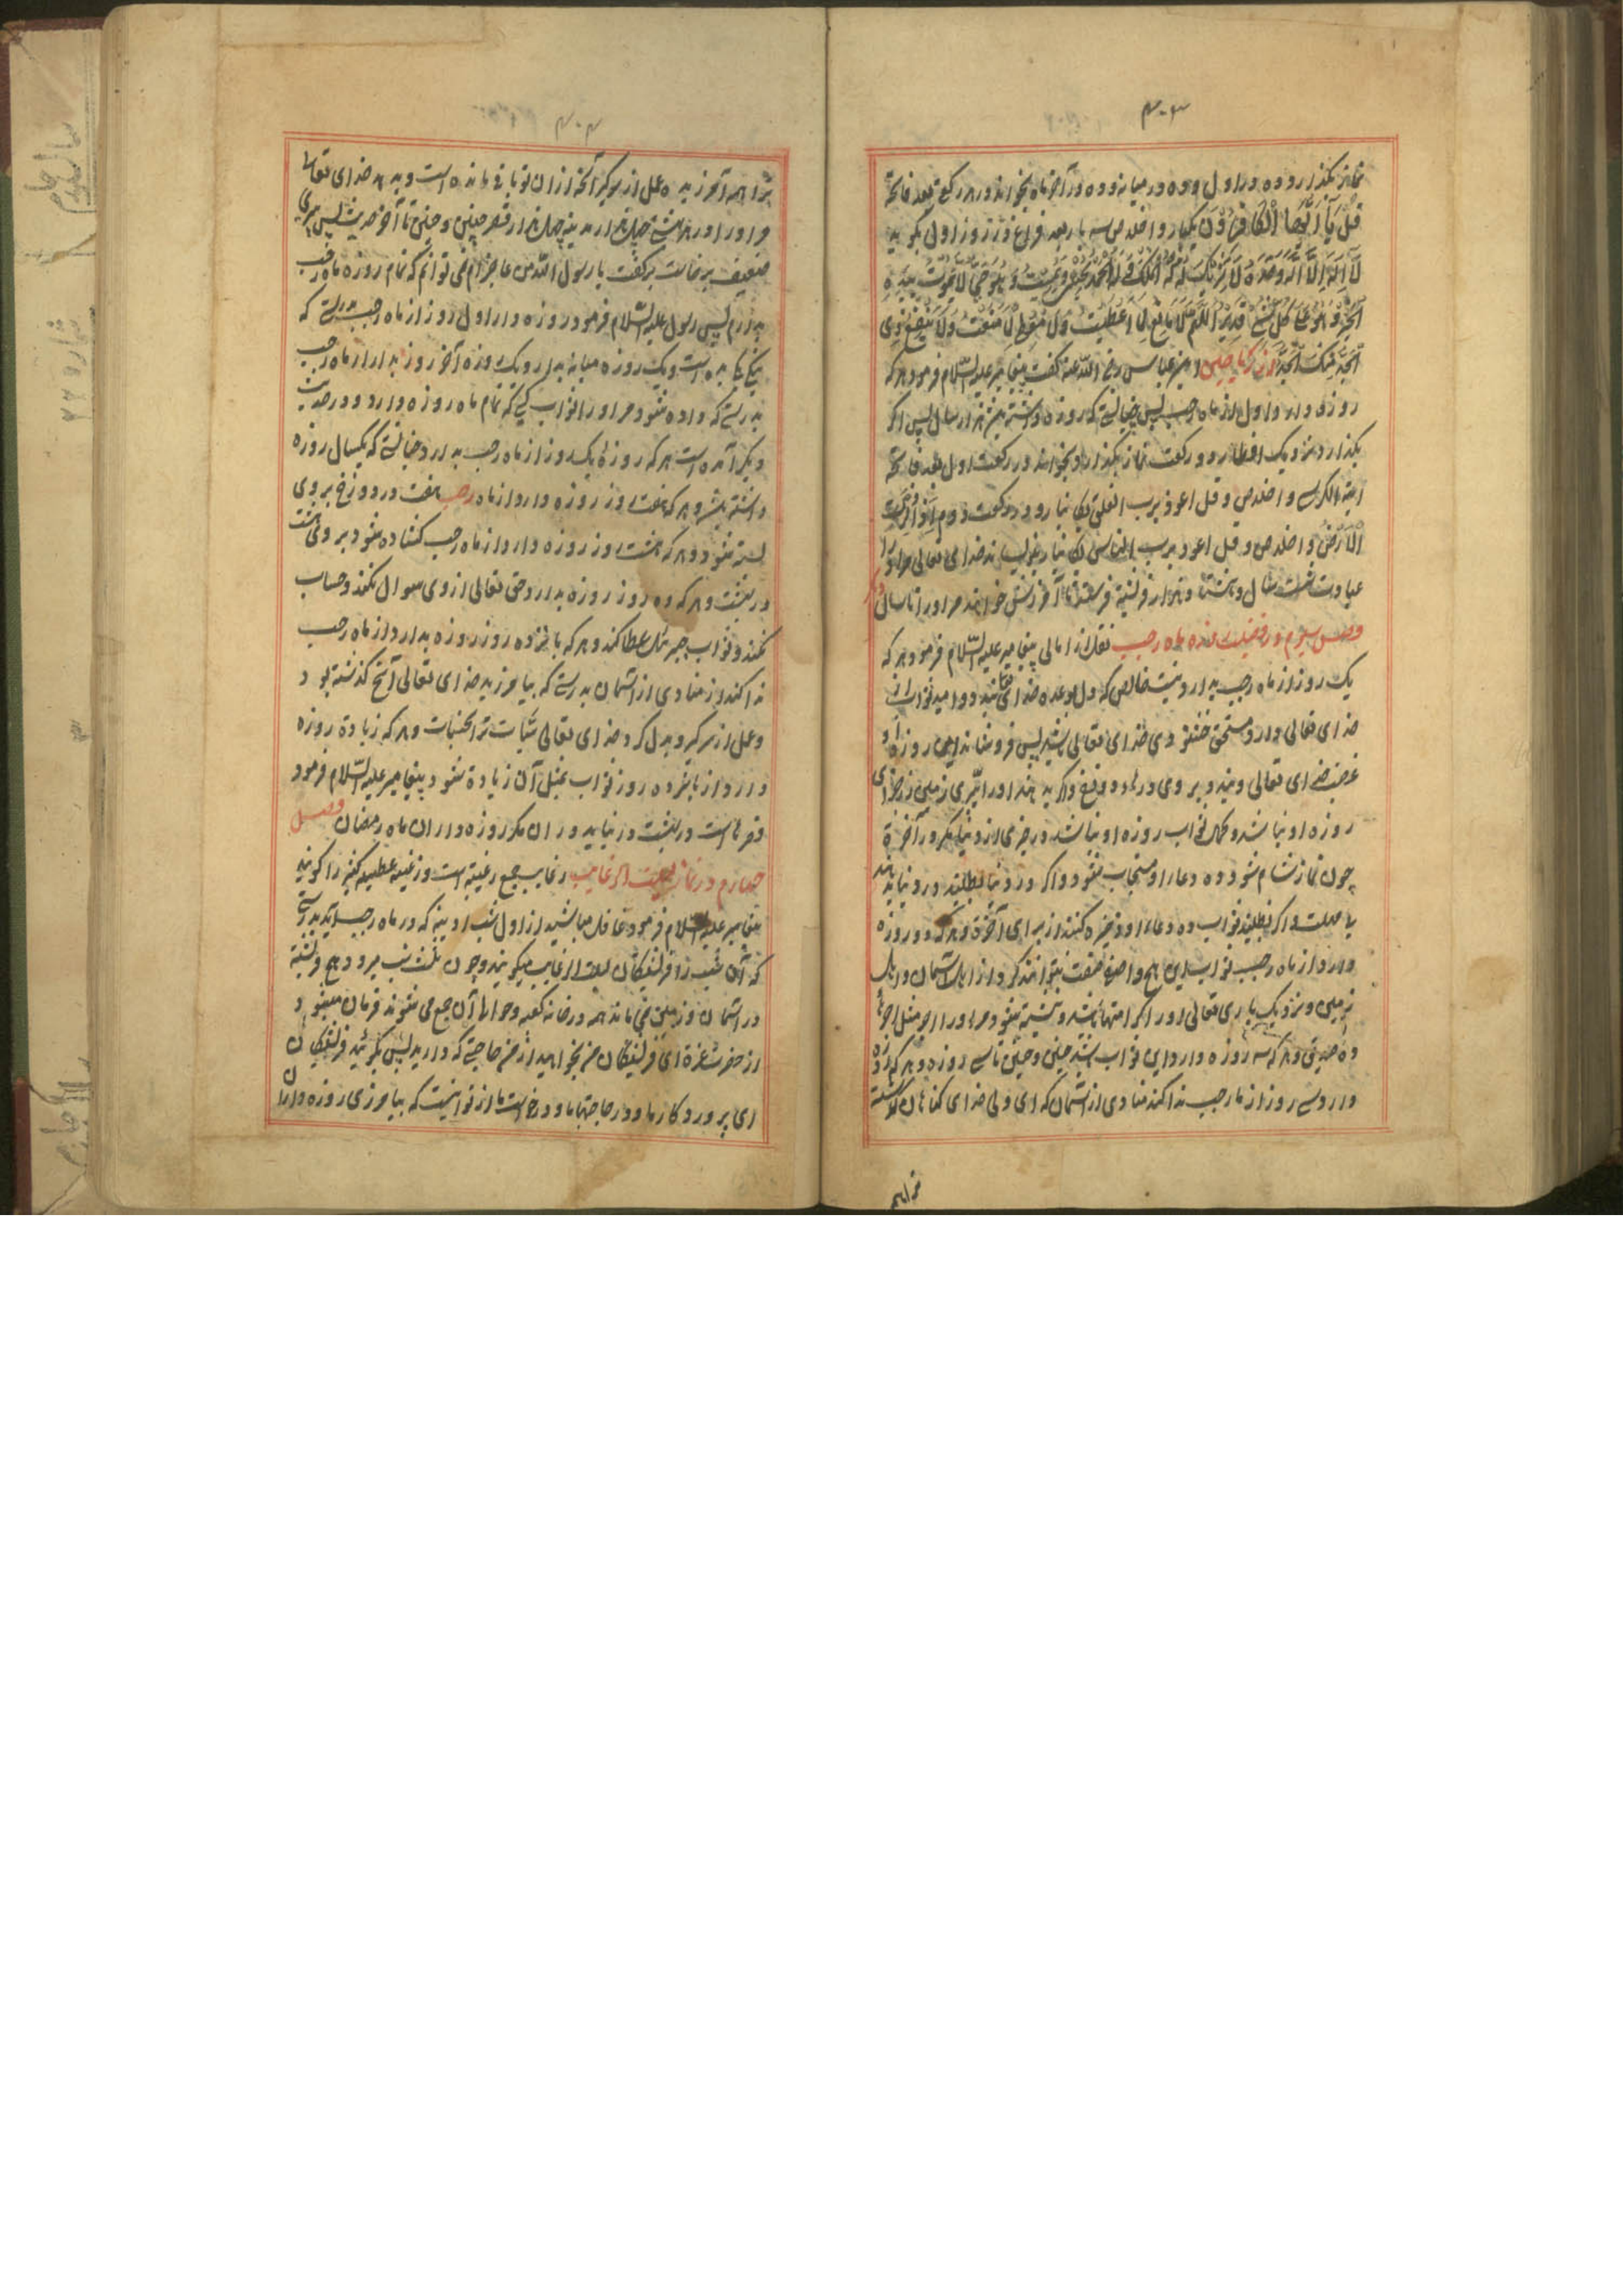 ۴۰۳
نماز بگذارد ده در اول و ده در میانه و ده در آخر ماه بخواند در هر رکعت بعد فاتحة
قُلْ یَا اَیُّهَا الْکَافِرُوْنَ یکبار و اخلاص سه بار بعد فراغ در روز اول بگوید
لَا اِلٰهَ اِلَّا اللّٰهُ وَحْدَهُ لَا شَرِیْکَ لَهُ لَهُ الْمُلْکُ وَلَهُ الْحَمْدُ یُحْیِیْ وَیُمِیْتُ وَهُوَ حَیٌّ لَا یَمُوْتُ بِیَدِهِ
الْخَیْرُ وَهُوَ عَلٰی کُلِّ شَیْءٍ قَدِیْرٌ اَللّٰهُمَّ لَا مَانِعَ لِمَا اَعْطَیْتَ وَلَا مُعْطِیَ لِمَا مَنَعْتَ وَلَا یَنْفَعُ ذِی
الْجَدِّ مِنْکَ الْجَدُّ عباس رضی الله عنه گفت پیغامبر علیه السّلام فرمود هر که
روزه دارد اول از ماه رجب پس چنانستی که روزه داشته هزار سال پس اگر
بگذارد نزدیک افطار دو رکعت نماز بگذارد و بخواند در رکعت اول بعد فاتحة
آیة الکرسی و اخلاص و قل اعوذ برب الفلق یکبار و در رکعت دوم اِذَا زُلْزِلَتِ
الْاَرْضُ و اخلاص و قل اعوذ برب الناس یکبار بنویساند خدای تعالی مر او را
عبادت شصت سال و هزار فرشته فرستد تا آمرزش خواهند مر او را تا سال
فصل سیوم در فضیلت ماه رجب نقل از امالی پیغامبر علیه السّلام فرمود هر که
یک روز از ماه رجب بدارد نیت خالص که دل او بوعده خدای باشد و امید ثواب از
خدای تعالی دارد مستحق خشنودی خدای تعالی باشد پس فرونشاند این روزه
غضب خدای تعالی و بندد بر وی درهاء دوزخ و اگر بدهند او را پُری زمین زر جزای
روزه او نباشد و کمال ثواب روزه او نباشد در چیزی از دنیا مگر در آخرة
چون نماز شام شود ده دعاء او مستجاب شود و اگر در دنیا بطلبد در دنیا بدهند
یا مهلت و اگر نطلبد ثواب ده دعاء او ذخیره کنند از برای آخرة و هر که دو روزه
دارد از ماه رجب ثواب این هیچ واصف صفت نتواند کرد از اهل آسمان و اهل
زمین و نزدیک باری تعالی او را کرامتها باشد و نبشته شود مر او را اجر مثل اجرهاء
ده صدیق و هر که سه روزه دارد این ثواب باشد چنین و چنین تا سی روزه و هر که روزه
دارد سی روز از ماه رجب ندا کند منادی از آسمان که ای ولی خدای گناهان گذشته
۴۰۴
ترا همه آمرزیده عمل از سر گیر آنچه از آن تو باقی مانده است و بدهد خدای تعالی
مر او را در هر بهشتی چهل هزار مدینه چهل هزار قصر چنین و چنین تا آخر حدیث پس پیری
ضعیف برخاست بگفت یا رسول الله من عاجزم نمی توانم که تمام روزه ماه رجب
بدارم پس رسول علیه السّلام فرمود روزه دار اول روز از ماه رجب بدرستی که
یکی به ده است و یک روزه میانه بدار و یک روزه آخر روز بدار از ماه رجب
بدرستی که داده شود مر او را ثواب کسی که تمام ماه روزه دارد و در حدیث
دیگر آمده است هر که روزه یک روز از ماه رجب بدارد چنانستی که یکسال روزه
داشته باشد و هر که هفت روز روزه دارد از ماه رجب هفت در دوزخ بر وی
بسته شود و هر که هشت روز روزه دارد از ماه رجب کشاده شود بر وی هشت
در بهشت و هر که ده روز روزه بدارد حق تعالی از وی سوال نکند و حساب
نکند و ثواب جبرئیل عطا کند و هر که پانزده روز روزه بدارد از ماه رجب
ندا کند منادی از آسمان بدرستی که بیامرزید خدای تعالی آنچه گذشته بود
و عمل از سر گیر و بدل کرد خدای تعالی سَیّآت ترا بحسنات و هر که زیادة روزه
دارد از پانزده روز ثواب بمثل آن زیادة شود پیغامبر علیه السّلام فرمود
قصری است در بهشت در نیاید در آن مگر روزه داران ماه رمضان فصل
چهارم در نماز لیلت الرغایب رغایب جمع رغیبة است و رغیبة عطیه کثیر را گویند
پیغامبر علیه السلام فرمود غافل مباشید از اول شب ادینه که در ماه رجب آید بدرستی
که آن شب را فرشتگان لیلت الرغایب میگویند و چون ثلث شب میرود هیچ فرشته
در آسمان و زمین نمی ماند همه در خانه کعبه و حوالی آن جمع می شوند فرمان میشود
از حضرت عزة ای فرشتگان من بخواهید از من حاجتی که دارید پس بگویند فرشتگان
ای پروردگار ما در حاجتهاء ما و درخواست ما از تو انست که بیامرزی روزه داران